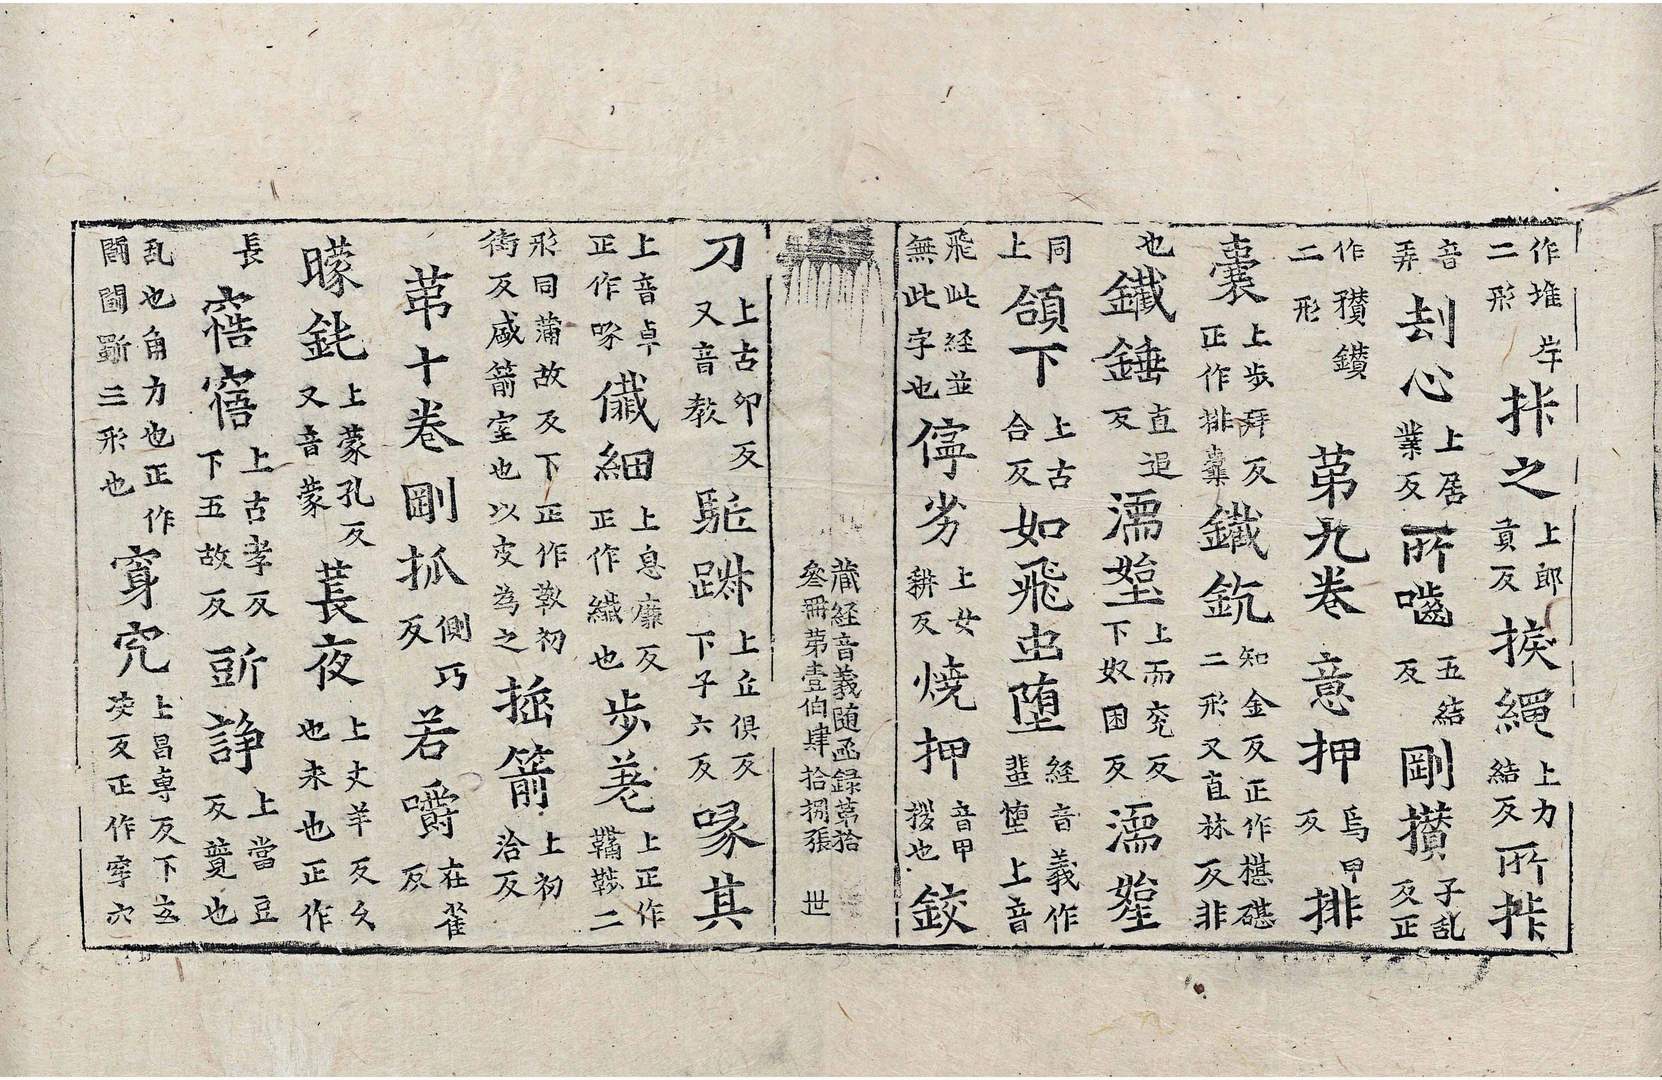 作堆岸二形 拤之 上郎貢反 捩繩 上力結反 所拤
音弄 刦心 上居業反 所嚙 五結反 剛攅 子乱反正
作穳鑽二形 苐九卷 意押 烏甲反 排
囊 上步拜反正作排橐 鐵鈂 知金反正作椹碪二形又直林反非
也 鐵錘 直追反 濡㜸 上而兖反下奴困反 濡㜸
同上 頜下 上古合反 如飛虫堕 經音義作蜚墮上音
飛此經並無此字也 儜劣 上女耕反 燒押 音甲挍也 鉸
藏經音義随函録第拾叄冊第壹伯肆拾捌張 世
刀 上古卯反又音教 駈蹴 上丘俱反下子六反 喙其
上音卓正作啄 儀細 上息廉反正作纖也 步茤 上正作鞴鞁二
形同蒲故反下正作鞁初 㨨箭 上初洽反
衛反盛箭室也以皮為之
苐十卷 剛抓 側巧反 若嚼 在雀反
矇㲊 上蒙孔反又音蒙 萇夜 上丈羊反久也未也正作
長 窖寤 上古孝反下五故反 䜴諍 上當豆反競也
乱也角力也正作鬪鬭斵三形也 穿究 上昌專反下玄決反正作穿穴